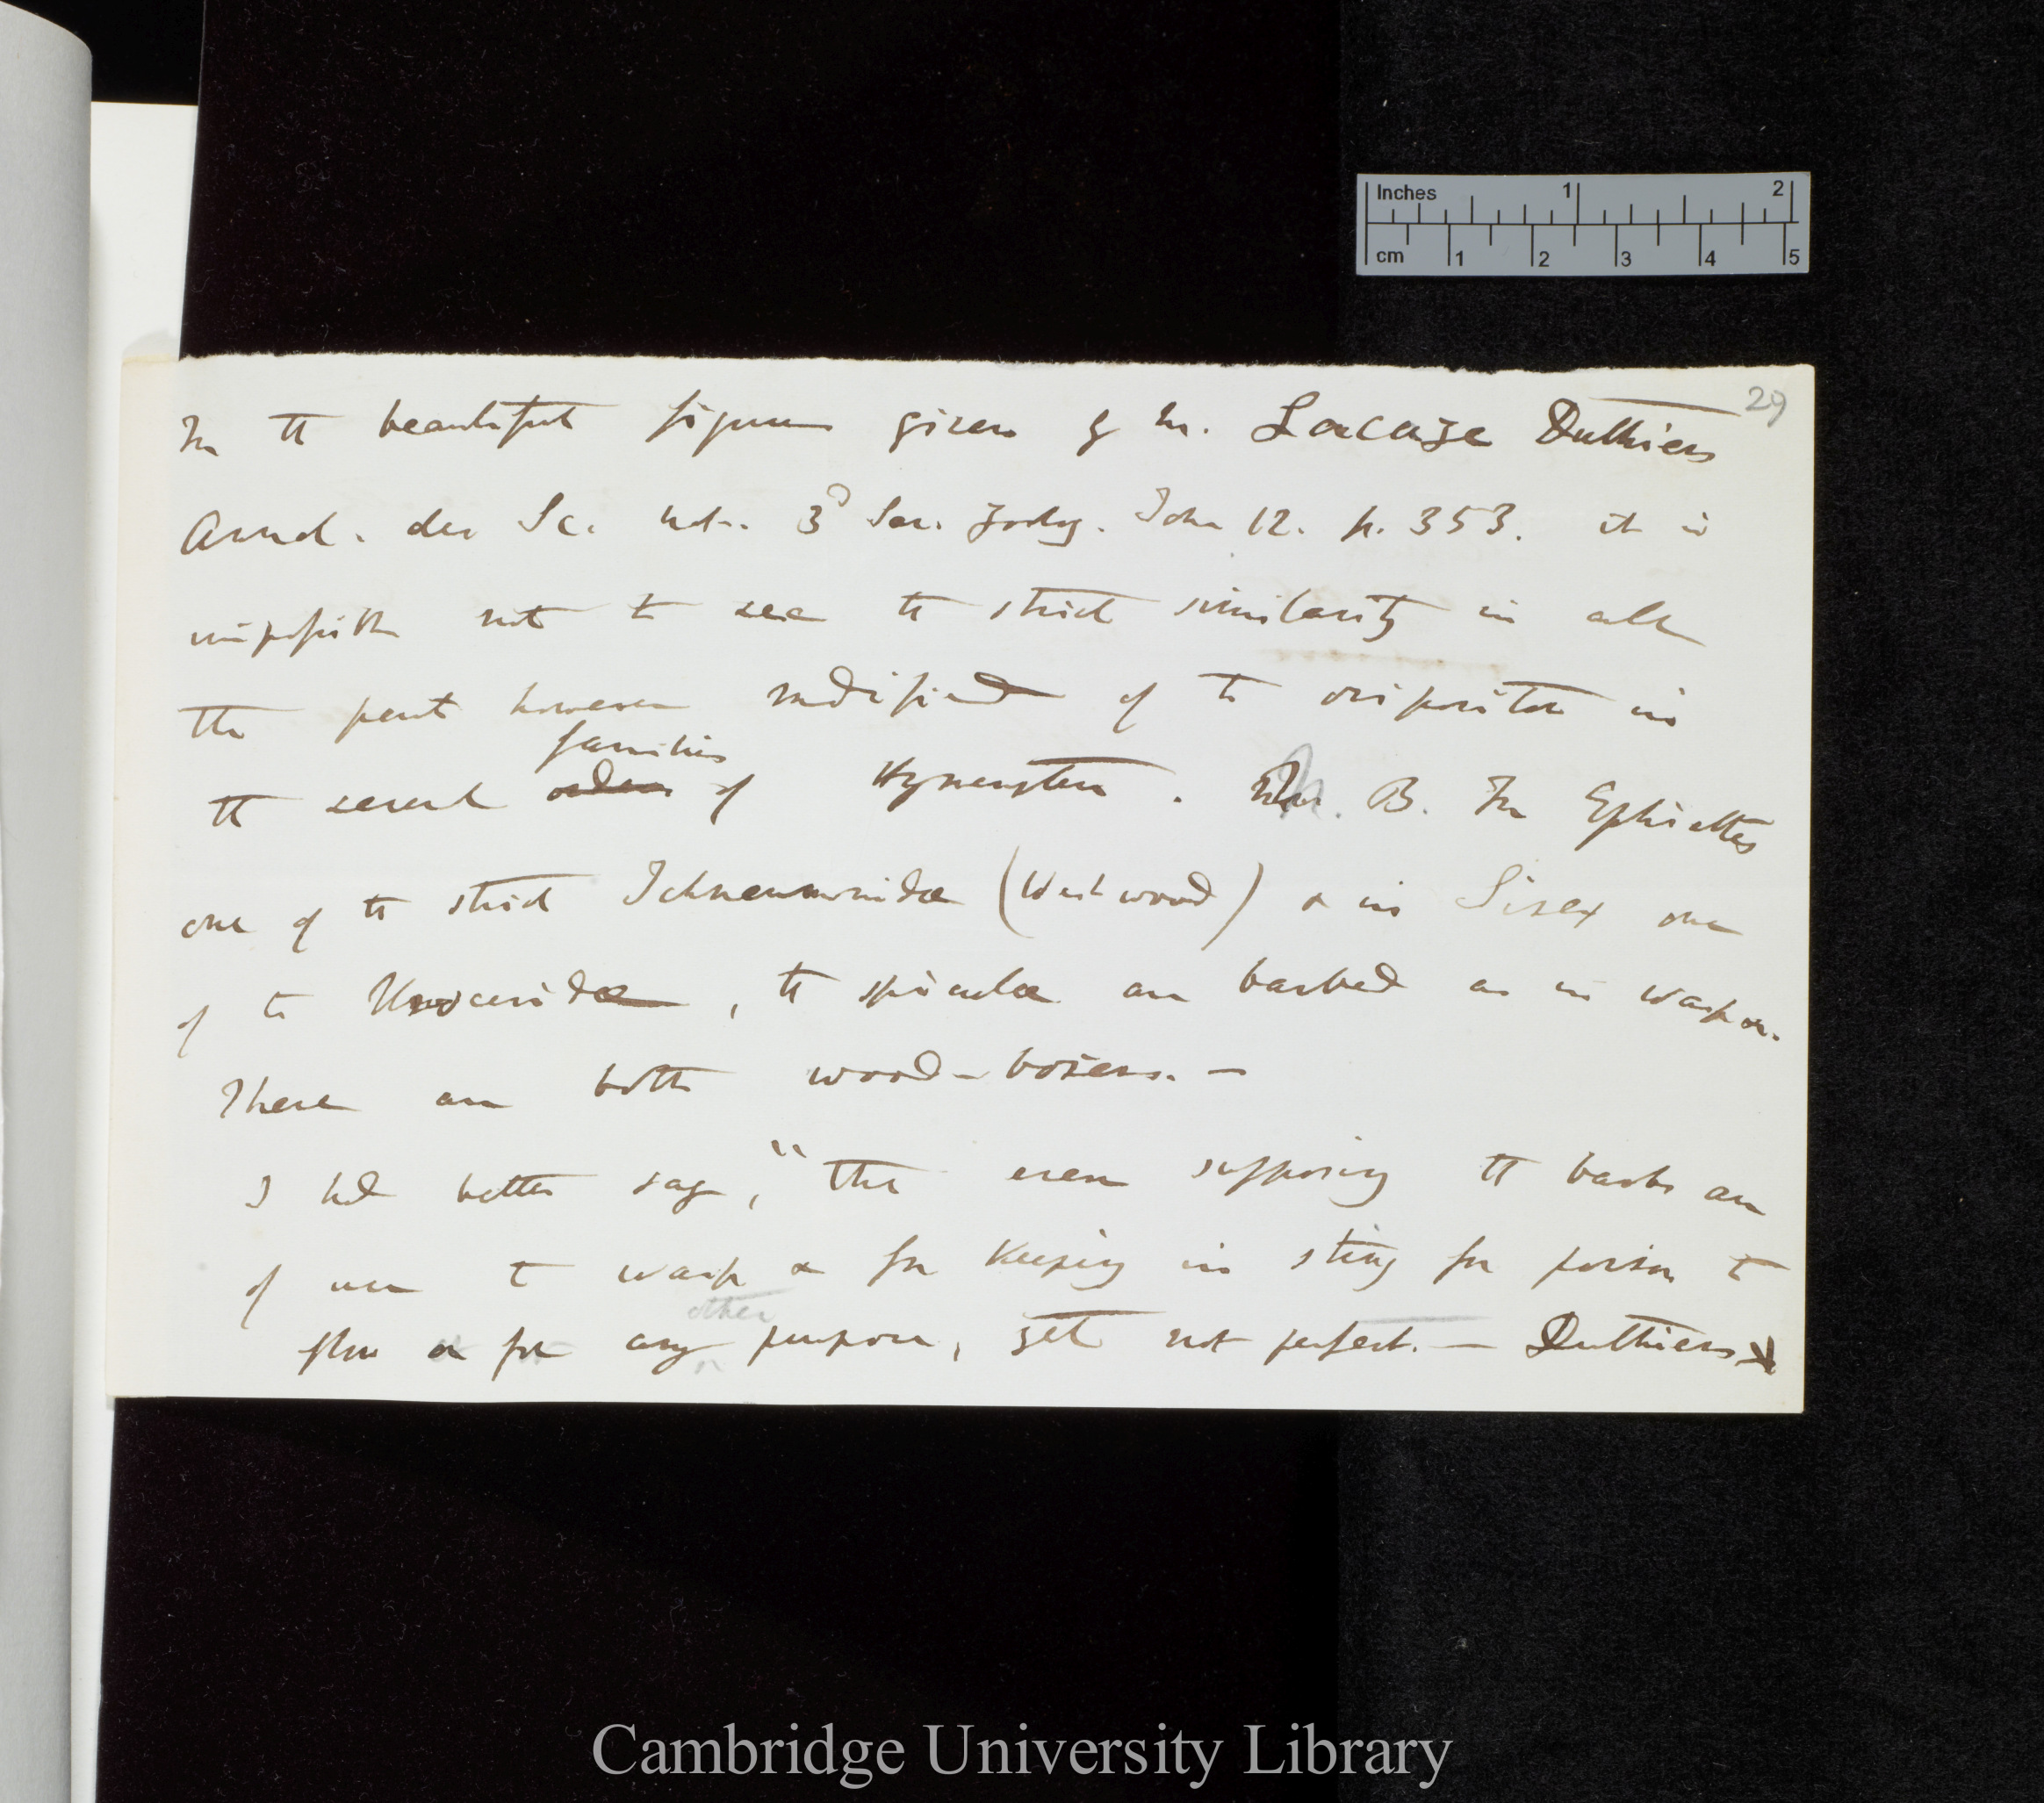 29
In the beautiful figures given by M. Lacaze Duthiers
Annal. des Sc. Nat. 3d Ser. Zoolog. Tom 12. p. 353. it is
impossible not to see the strict similarity in all
the parts however modified of the ovipositor in
families
the several orders of Hymenoptera. N. B. In Ephialtes
one of the strict Ichneumonidæ (Westwood) & in Sirex one
of the Uroceridæ, the spiculæ are barbed as in wasp &c.
These are both wood-borers. —
I had better say, "the even supposing the barbs are
of use to wasp & for keeping in sting for poison to
other
flow or for any purpose, yet not perfect. — Duthiers
Inches 1 2
cm 1 2 3 4 5
Cambridge University Library